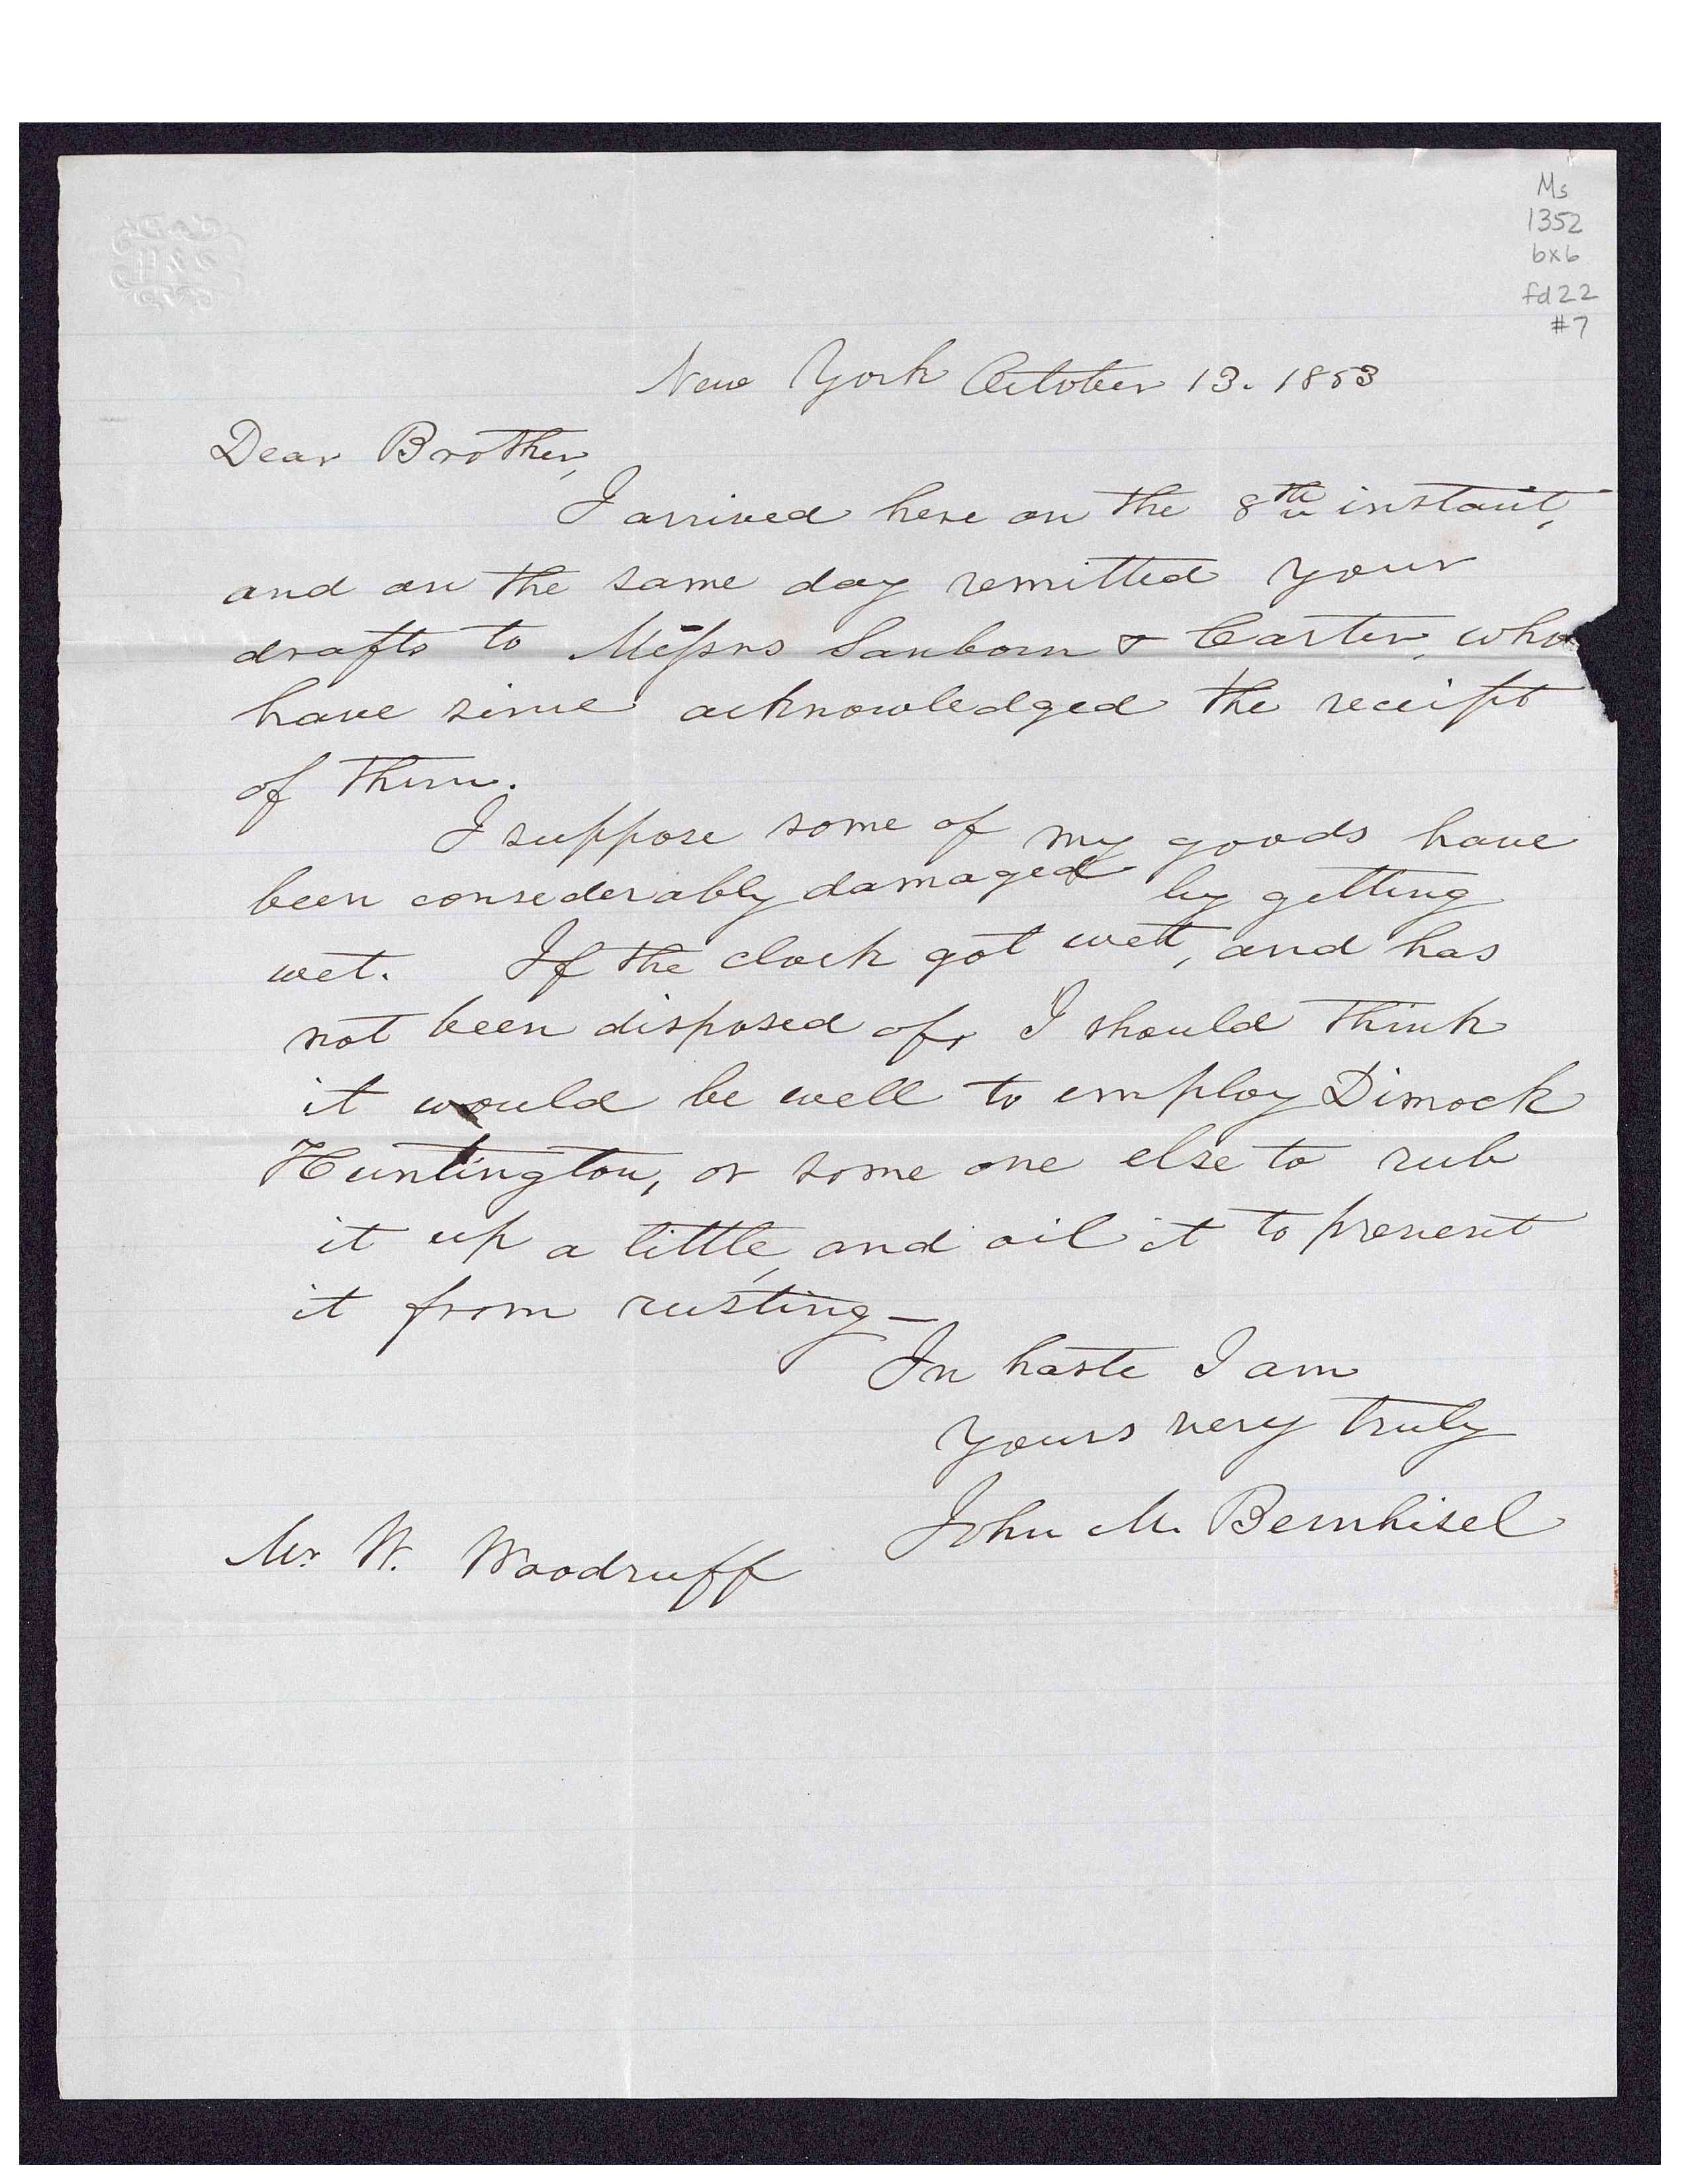 Ms
1352
bx6
fd 22
#7
New York October 13. 1853
Dear Brother,
I arrived here on the 8th instant,
and on the same day remitted your
drafts to Messrs Sanborn & Carter, who
have since acknowledged the receipt
of them.
I suppose some of my goods have
been considerably damaged by getting
wet. If the clock got wett, and has
not been disposed of, I should think
it would be well to employ Dimock
Huntington, or some one else to rub
it up a little, and oil it to prevent
it from rusting—
In haste I am
yours very truly
John M. Bernhisel
Mr. W. Woodruff